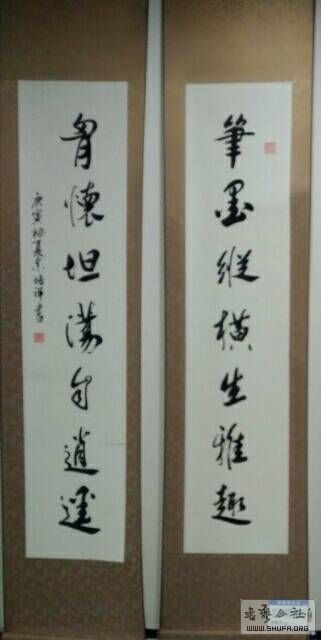 筆墨縱橫生雅趣
胷懷坦蕩自逍遥
庚寅初夏 書
书艺公社
WWW.SHUFA.ORG